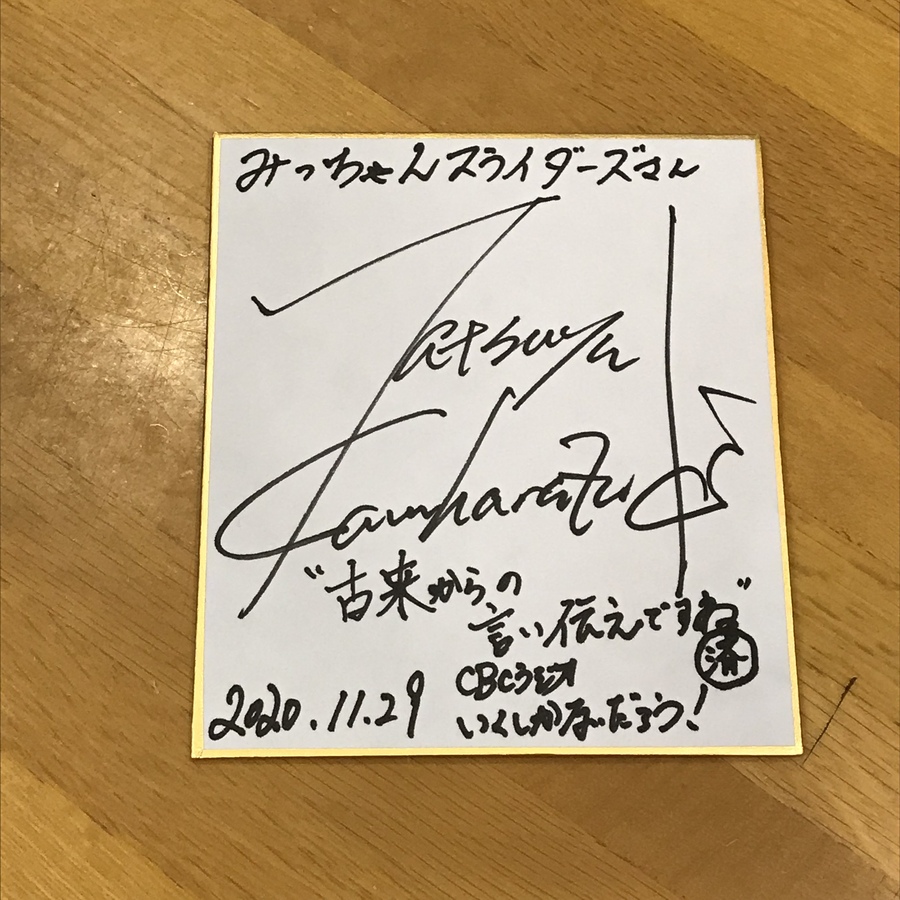 みっちゃんスライダーズさん
Tatsuya
"古来からの
言い伝えですね"
済
CBCラジオ
いくしかないだろう!
2020.11.29